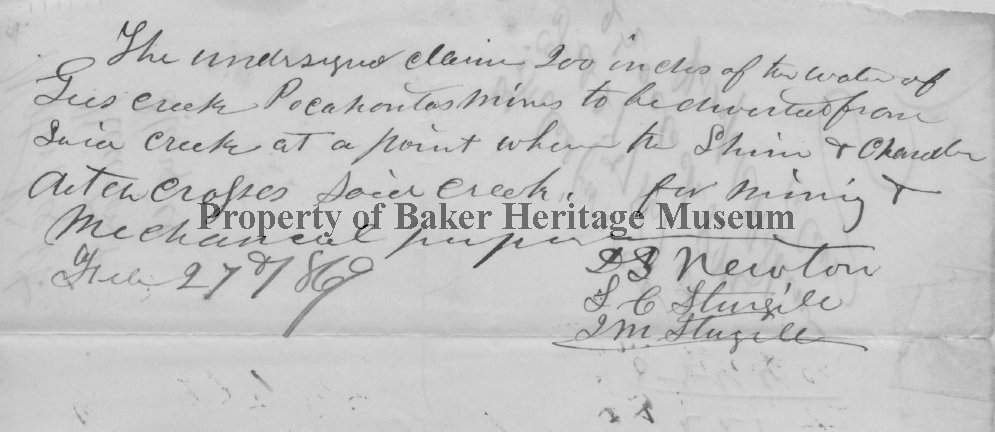 The undersigned claim 200 inches of the water of
Gees creek Pocahontas mines to be diverted from
said creek at a point where the Shinn & Chandler
ditch crosses said creek. for mining &
Mechanical purposes
Property of Baker Heritage Museum
Feb 27th 1869
D S Newton
S C Sturgill
J M Sturgill